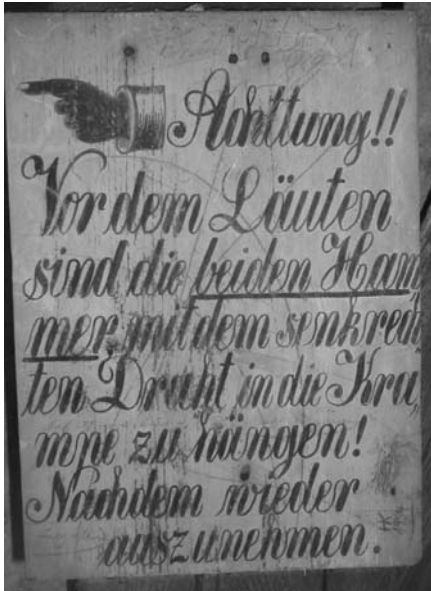 Achttung!!
Vor dem Läuten
sind die beiden Ham
mer, mit dem senkrech
ten Draht in die Kra,
mpe zu hängen!
Nachdem wieder
auszunehmen.